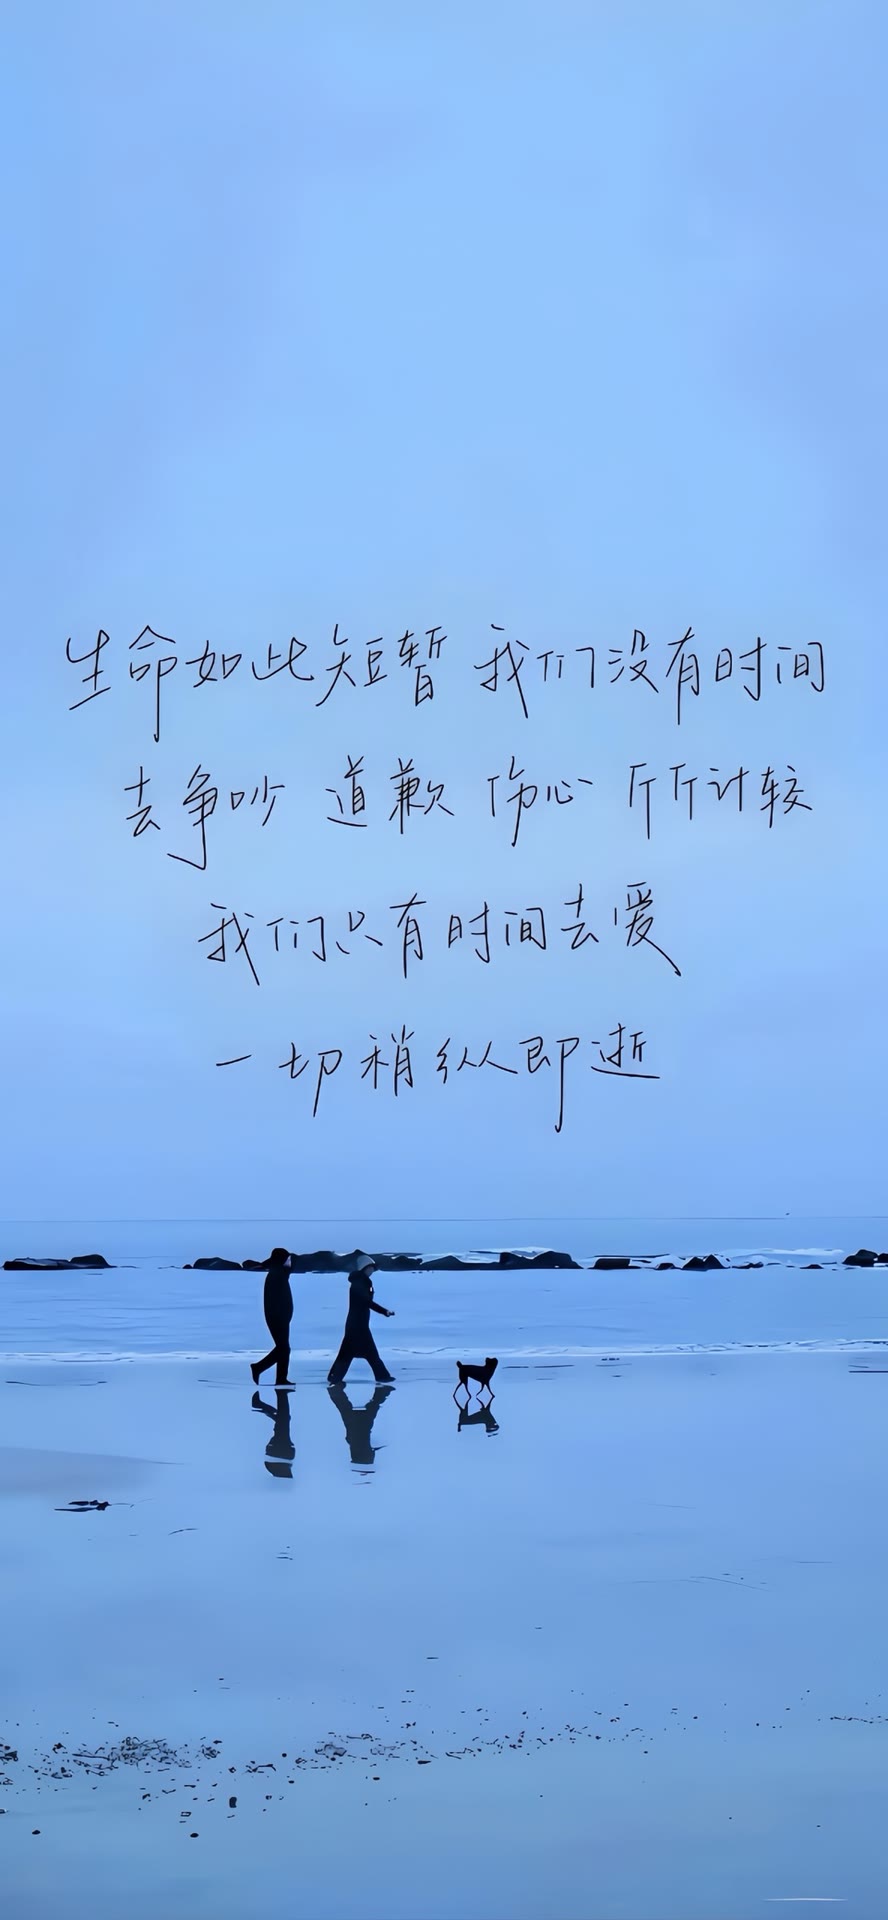 生命如此短暂 我们没有时间
去争吵 道歉 伤心 斤斤计较
我们只有时间去爱
一切稍纵即逝